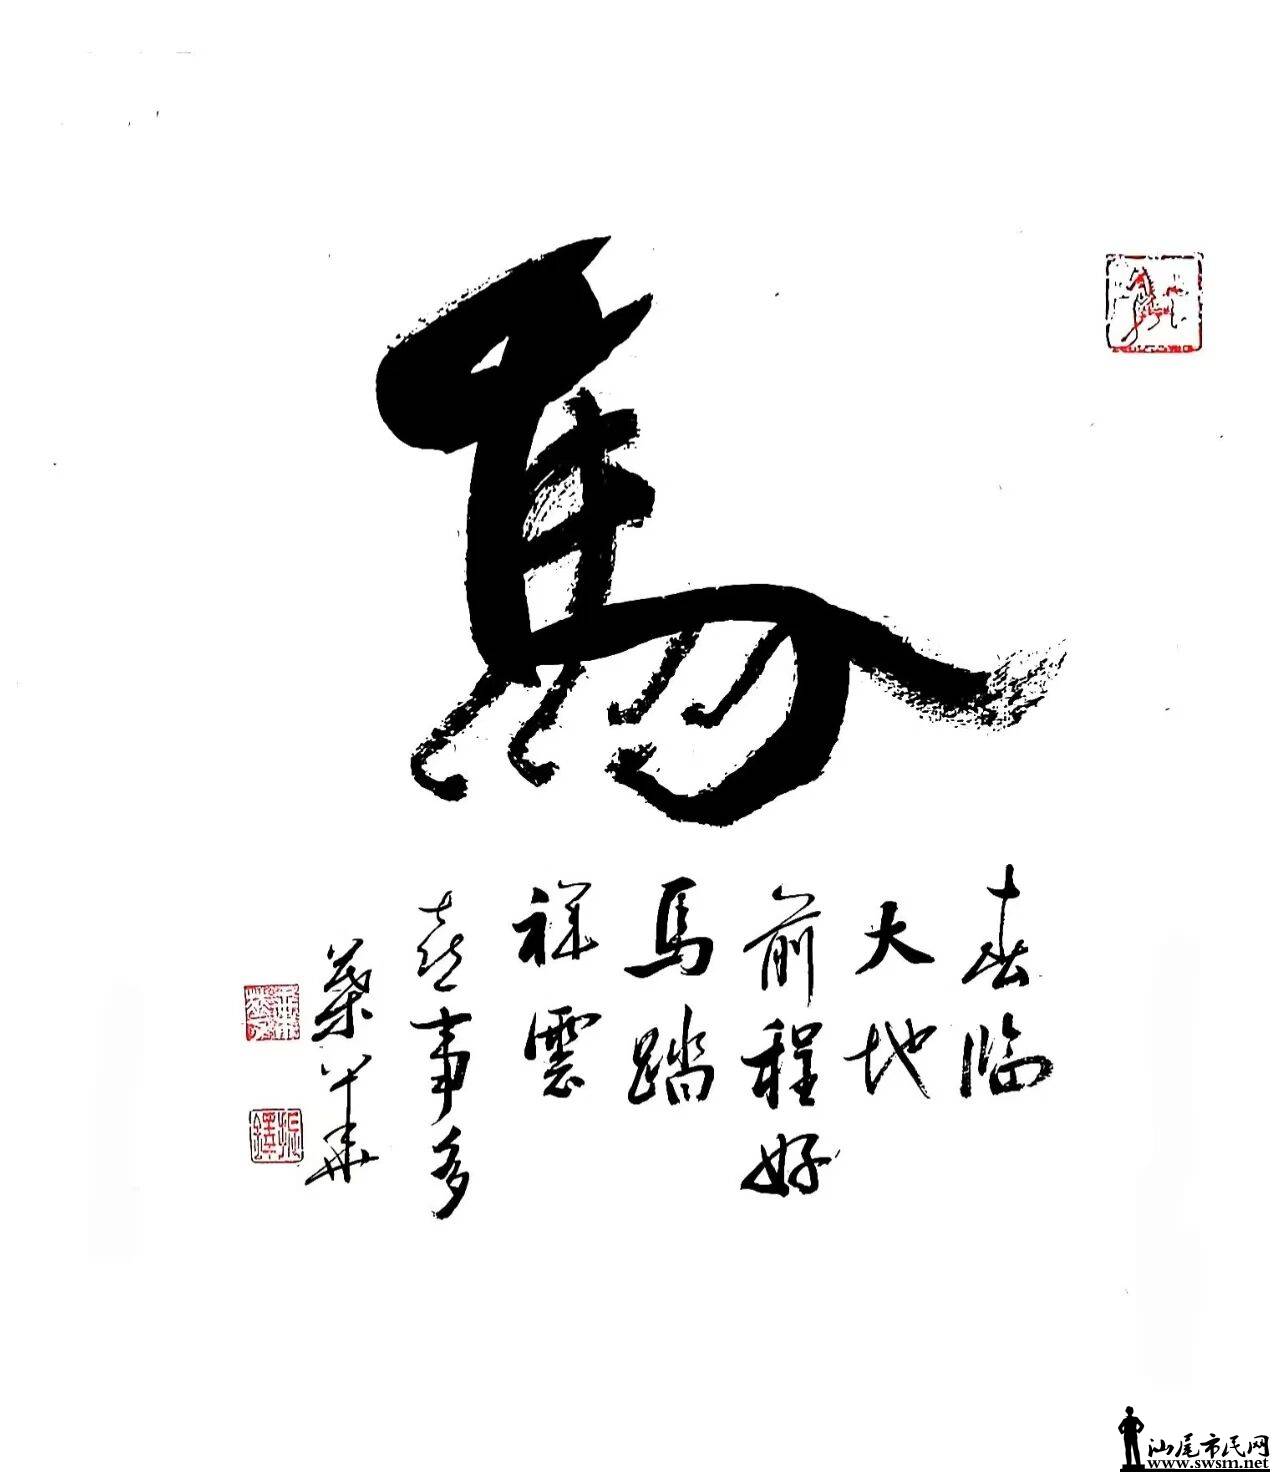 馬
春临
大地
前程好
馬踏
祥雲
喜事多
葉
汕尾市民网
www.swsm.net